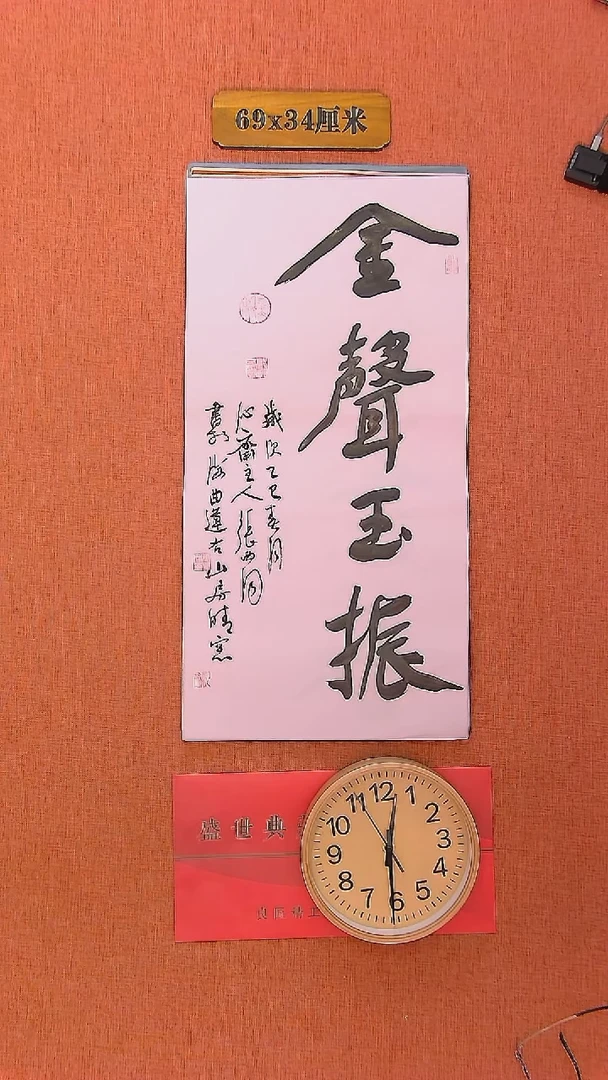 69x34厘米
金聲玉振
歲次乙巳春月
沁齋主人張
書
曲蓮右山房晴窓
盛世典
12
1
2
3
4
5
6
7
8
9
10
11